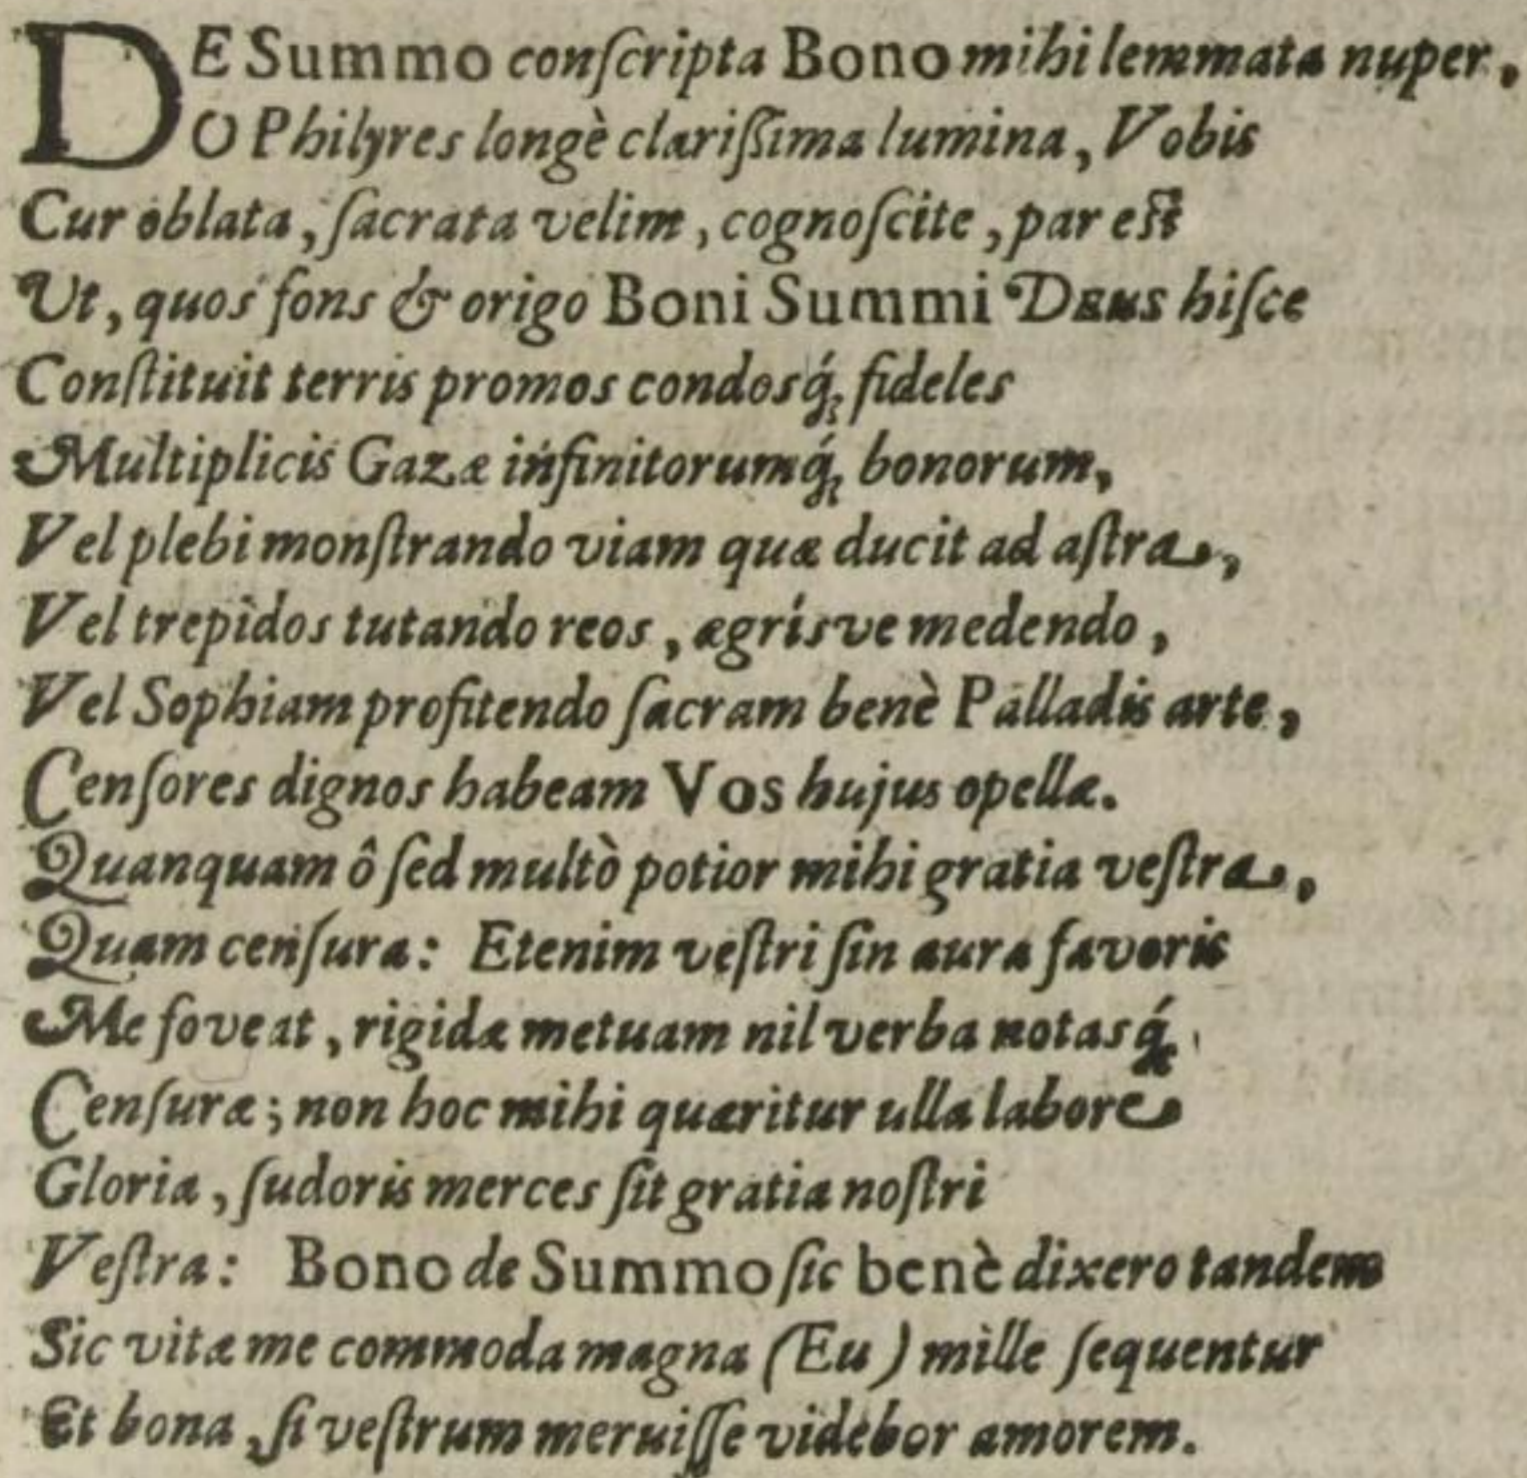 DE Summo conſcripta Bono mihi lemmata nuper,
O Philyres longè clariſſima lumina, Vobis
Cur oblata, ſacrata velim, cognoſcite, par eſt
Ut, quos fons & origo Boni Summi Deus hiſce
Conſtituit terris promos condosq́; fideles
Multiplicis Gazæ infinitorumq́; bonorum,
Vel plebi monſtrando viam quæ ducit ad aſtra,
Vel trepidos tutando reos, ægrísve medendo,
Vel Sophiam profitendo ſacram benè Palladis arte,
Cenſores dignos habeam Vos hujus opellæ.
Quanquam ô ſed multò potior mihi gratia veſtra,
Quam cenſura: Etenim veſtri ſin aura favoris
Me foveat, rigidæ metuam nil verba notasq́;
Cenſuræ; non hoc mihi quæritur ulla labore
Gloria, ſudoris merces ſit gratia noſtri
Veſtra: Bono de Summo ſic benè dixero tandem
Sic vitæ me commoda magna (Eu) mille ſequentur
Et bona, ſi veſtrum meruiſſe videbor amorem.